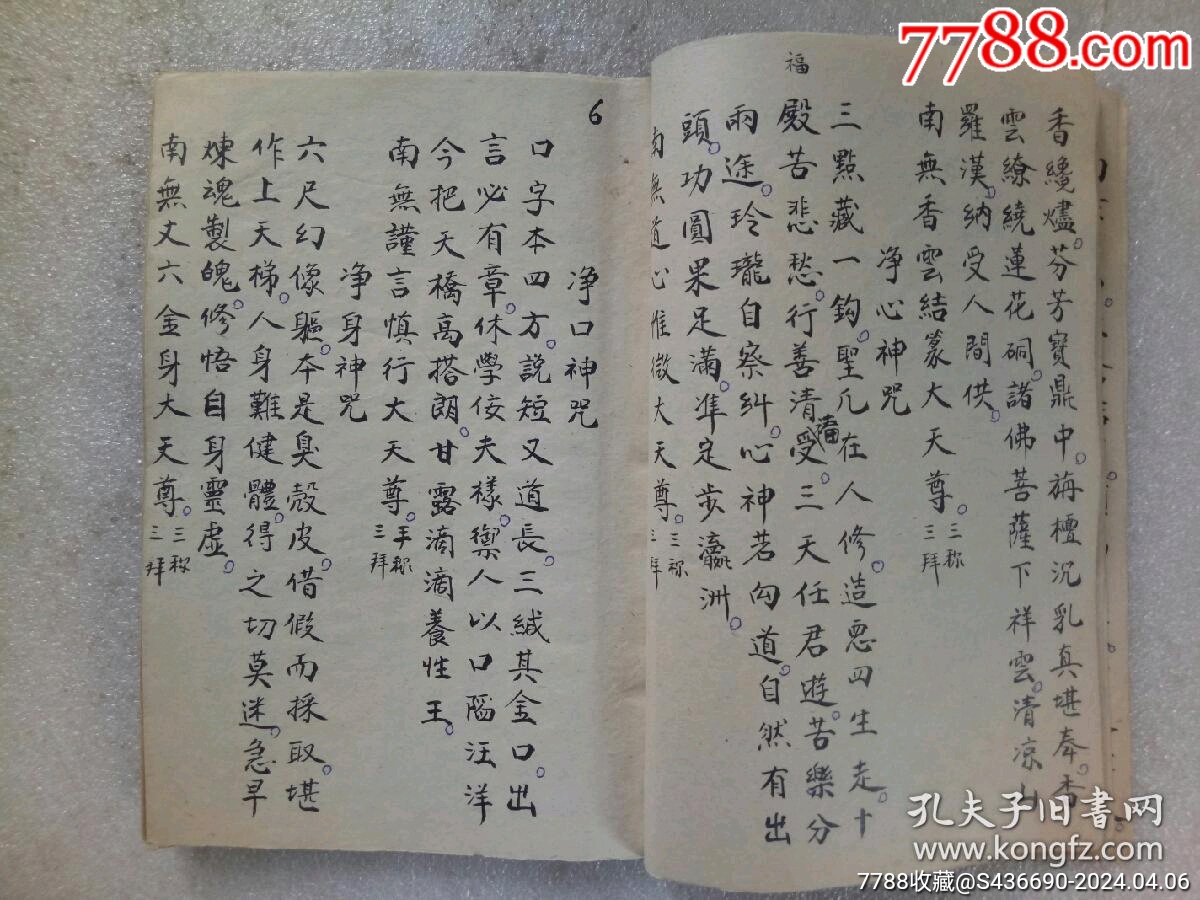 7788.com
福
香纔爐。芬芳寶鼎中。旃檀沉乳真堪奉。香
雲繚繞連花硐。諸佛菩薩下祥雲。清凉山
羅漢。納受人間供。
南無香雲結篆大天尊。三称三拜
净心神咒
三點藏一鈎。聖凡在人修。造惡四生走。十
殿苦悲愁。行善清福受。三天任君遊。苦樂分
兩途。玲瓏自察糾。心神若向道。自然有出
頭。功圓果足滿。準定步瀛洲。
南無道心惟微大天尊。三称三拜
6
净口神咒
口字本四方。説短又道長。三緘其金口。出
言必有章。休學佞夫樣。禦人以口陷汪洋
今把天橋高搭朗。甘露滴滴養性王。
南無謹言慎行大天尊。三称三拜
净身神咒
六尺幻像軀。本是臭殼皮。借假而採取。堪
作上天梯。人身難健體。得之切莫迷。急早
煉魂製魄。修悟自身靈虚。
南無丈六金身大天尊。三称三拜
孔夫子旧書网
www.kongfz.com
7788收藏@S436690-2024.04.06